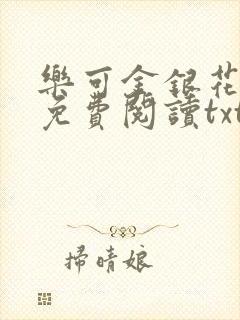 樂可金銀花
免費閱讀txt
掃晴娘